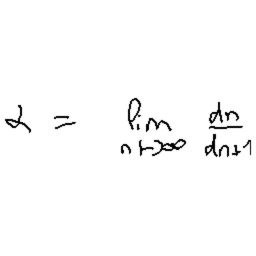 α = lim n↦∞ dn/dn+1